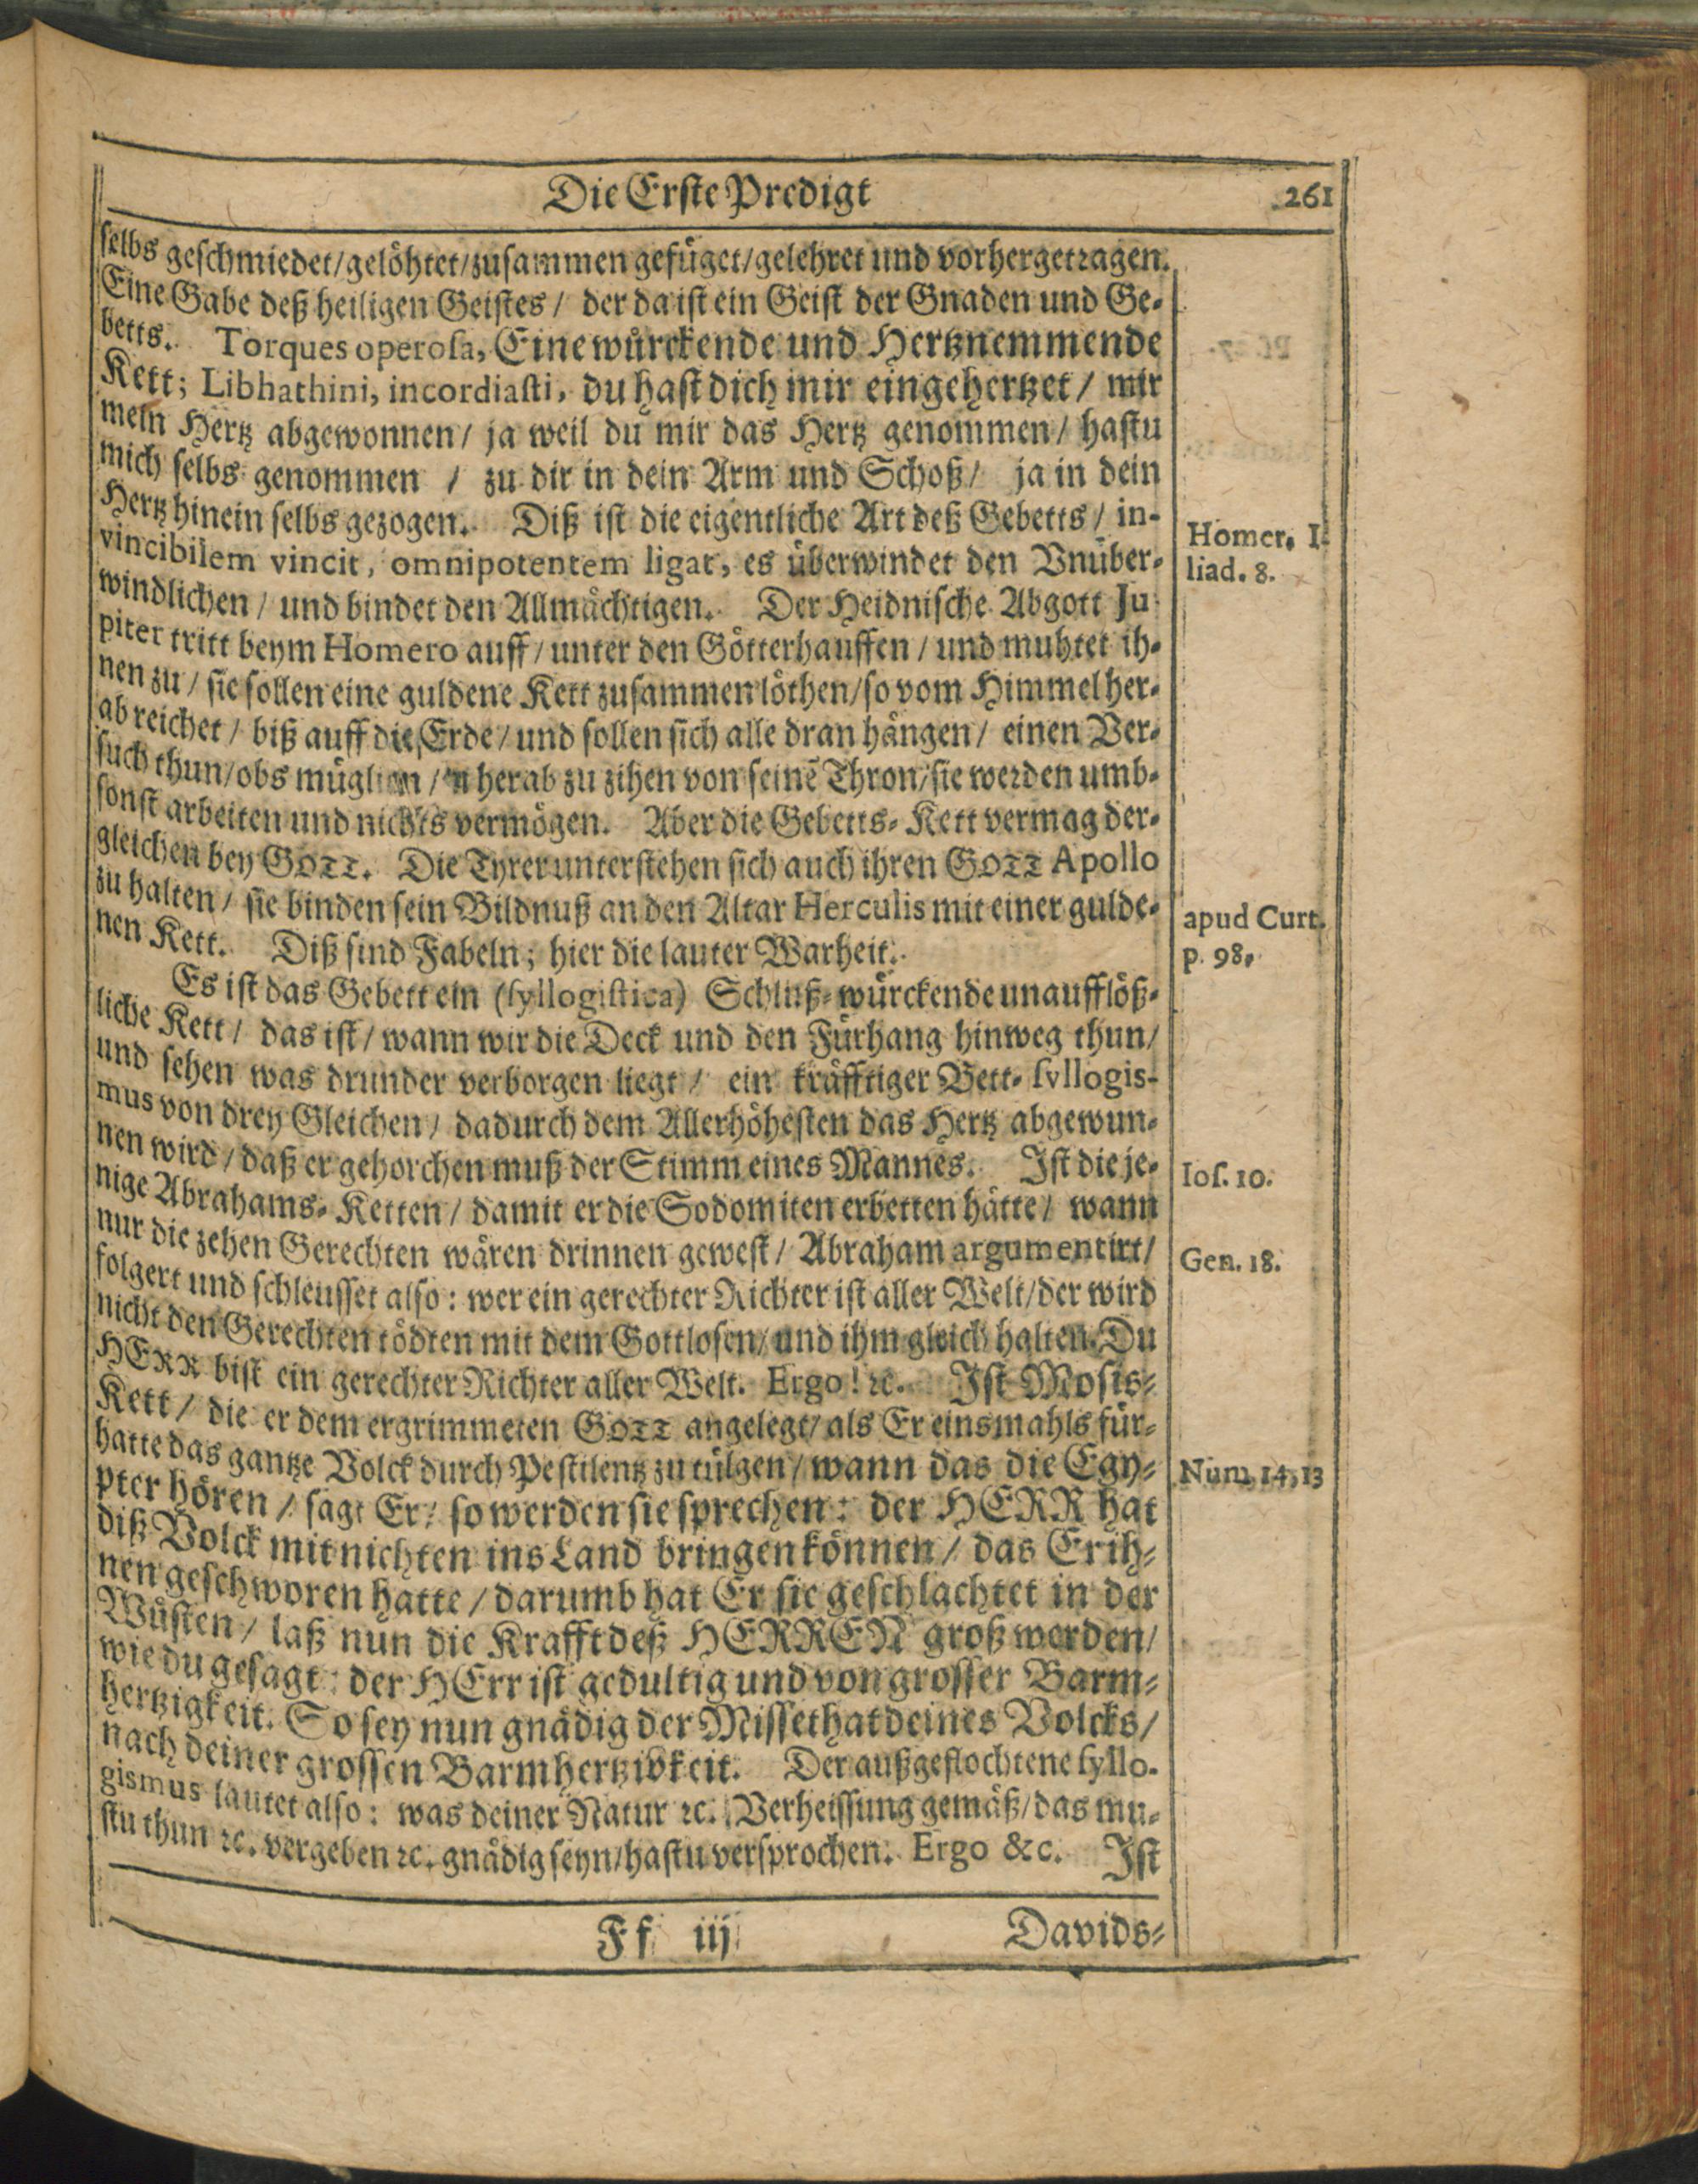 Die Erste Predigt 261
selbs geschmiedet/gelöhtet/zusammen gefüget/gelehret und vorhergetragen.
Eine Gabe deß heiligen Geistes / der da ist ein Geist der Gnaden und Ge-
betts. Torques operosa, Eine würckende und Hertznemmende
Kett; Libhathini, incordiasti, du hast dich mir eingehertzet / mir
mein Hertz abgewonnen / ja weil du mir das Hertz genommen / hastu
mich selbs genommen / zu dir in dein Arm und Schoß / ja in dein
Hertz hinein selbs gezogen. Diß ist die eigentliche Art deß Gebetts / in-
vincibilem vincit, omnipotentem ligat, es überwindet den Vnüber-
windlichen / und bindet den Allmächtigen. Der Heidnische Abgott Ju
piter tritt beym Homero auff / unter den Götterhauffen / und muhtet ih-
nen zu / sie sollen eine guldene Kett zusammen löthen/so vom Himmel her-
ab reichet / biß auff die Erde / und sollen sich alle dran hängen / einen Ver-
such thun/obs müglich / herab zu zihen von seinē Thron/sie werden umb-
sonst arbeiten und nichts vermögen. Aber die Gebetts-Kett vermag der-
gleichen bey GOTT. Die Tyrer unterstehen sich auch ihren GOTT Apollo
zu halten / sie binden sein Bildnuß an den Altar Herculis mit einer gulde-
nen Kett. Diß sind Fabeln; hier die lauter Warheit.
Es ist das Gebett ein (syllogistica) Schluß-würckende unaufflöß-
liche Kett / das ist / wann wir die Deck und den Fürhang hinweg thun/
und sehen was drunder verborgen liegt / ein kräfftiger Bett-syllogis-
mus von drey Gleichen / dadurch dem Allerhöhesten das Hertz abgewun-
nen wird / daß er gehorchen muß der Stimm eines Mannes. Ist die je-
nige Abrahams-Ketten / damit er die Sodomiten erbetten hätte / wann
nur die zehen Gerechten wären drinnen gewest / Abraham argumentirt/
folgert und schleusset also: wer ein gerechter Richter ist aller Welt/der wird
nicht den Gerechten tödten mit dem Gottlosen/und ihm gleich halten. Du
HERR bist ein gerechter Richter aller Welt. Ergo! ꝛc. Ist Mosis-
Kett / die er dem ergrimmeten GOTT angelegt/als Er einsmahls für-
hatte das gantze Volck durch Pestilentz zu tülgen / wann das die Egy-
pter hören / sagt Er / so werden sie sprechen: der HERR hat
diß Volck mit nichten ins Land bringen können / das Er ih-
nen geschworen hatte / darumb hat Er sie geschlachtet in der
Wüsten / laß nun die Krafft deß HERREN groß werden/
wie du gesagt: der HErr ist gedultig und von grosser Barm-
hertzigkeit. So sey nun gnädig der Missethat deines Volcks/
nach deiner grossen Barmhertzivkeit. Der außgeflochtene syllo-
gismus lautet also: was deiner Natur ꝛc. Verheissung gemäß/das mu-
stu thun ꝛc. vergeben ꝛc. gnädig seyn/hastu versprochen. Ergo &c. Ist
Ff iij Davids-
Homer. I-
liad. 8.
apud Curt.
p. 98.
Ios. 10.
Gen. 18.
Num. 14,13